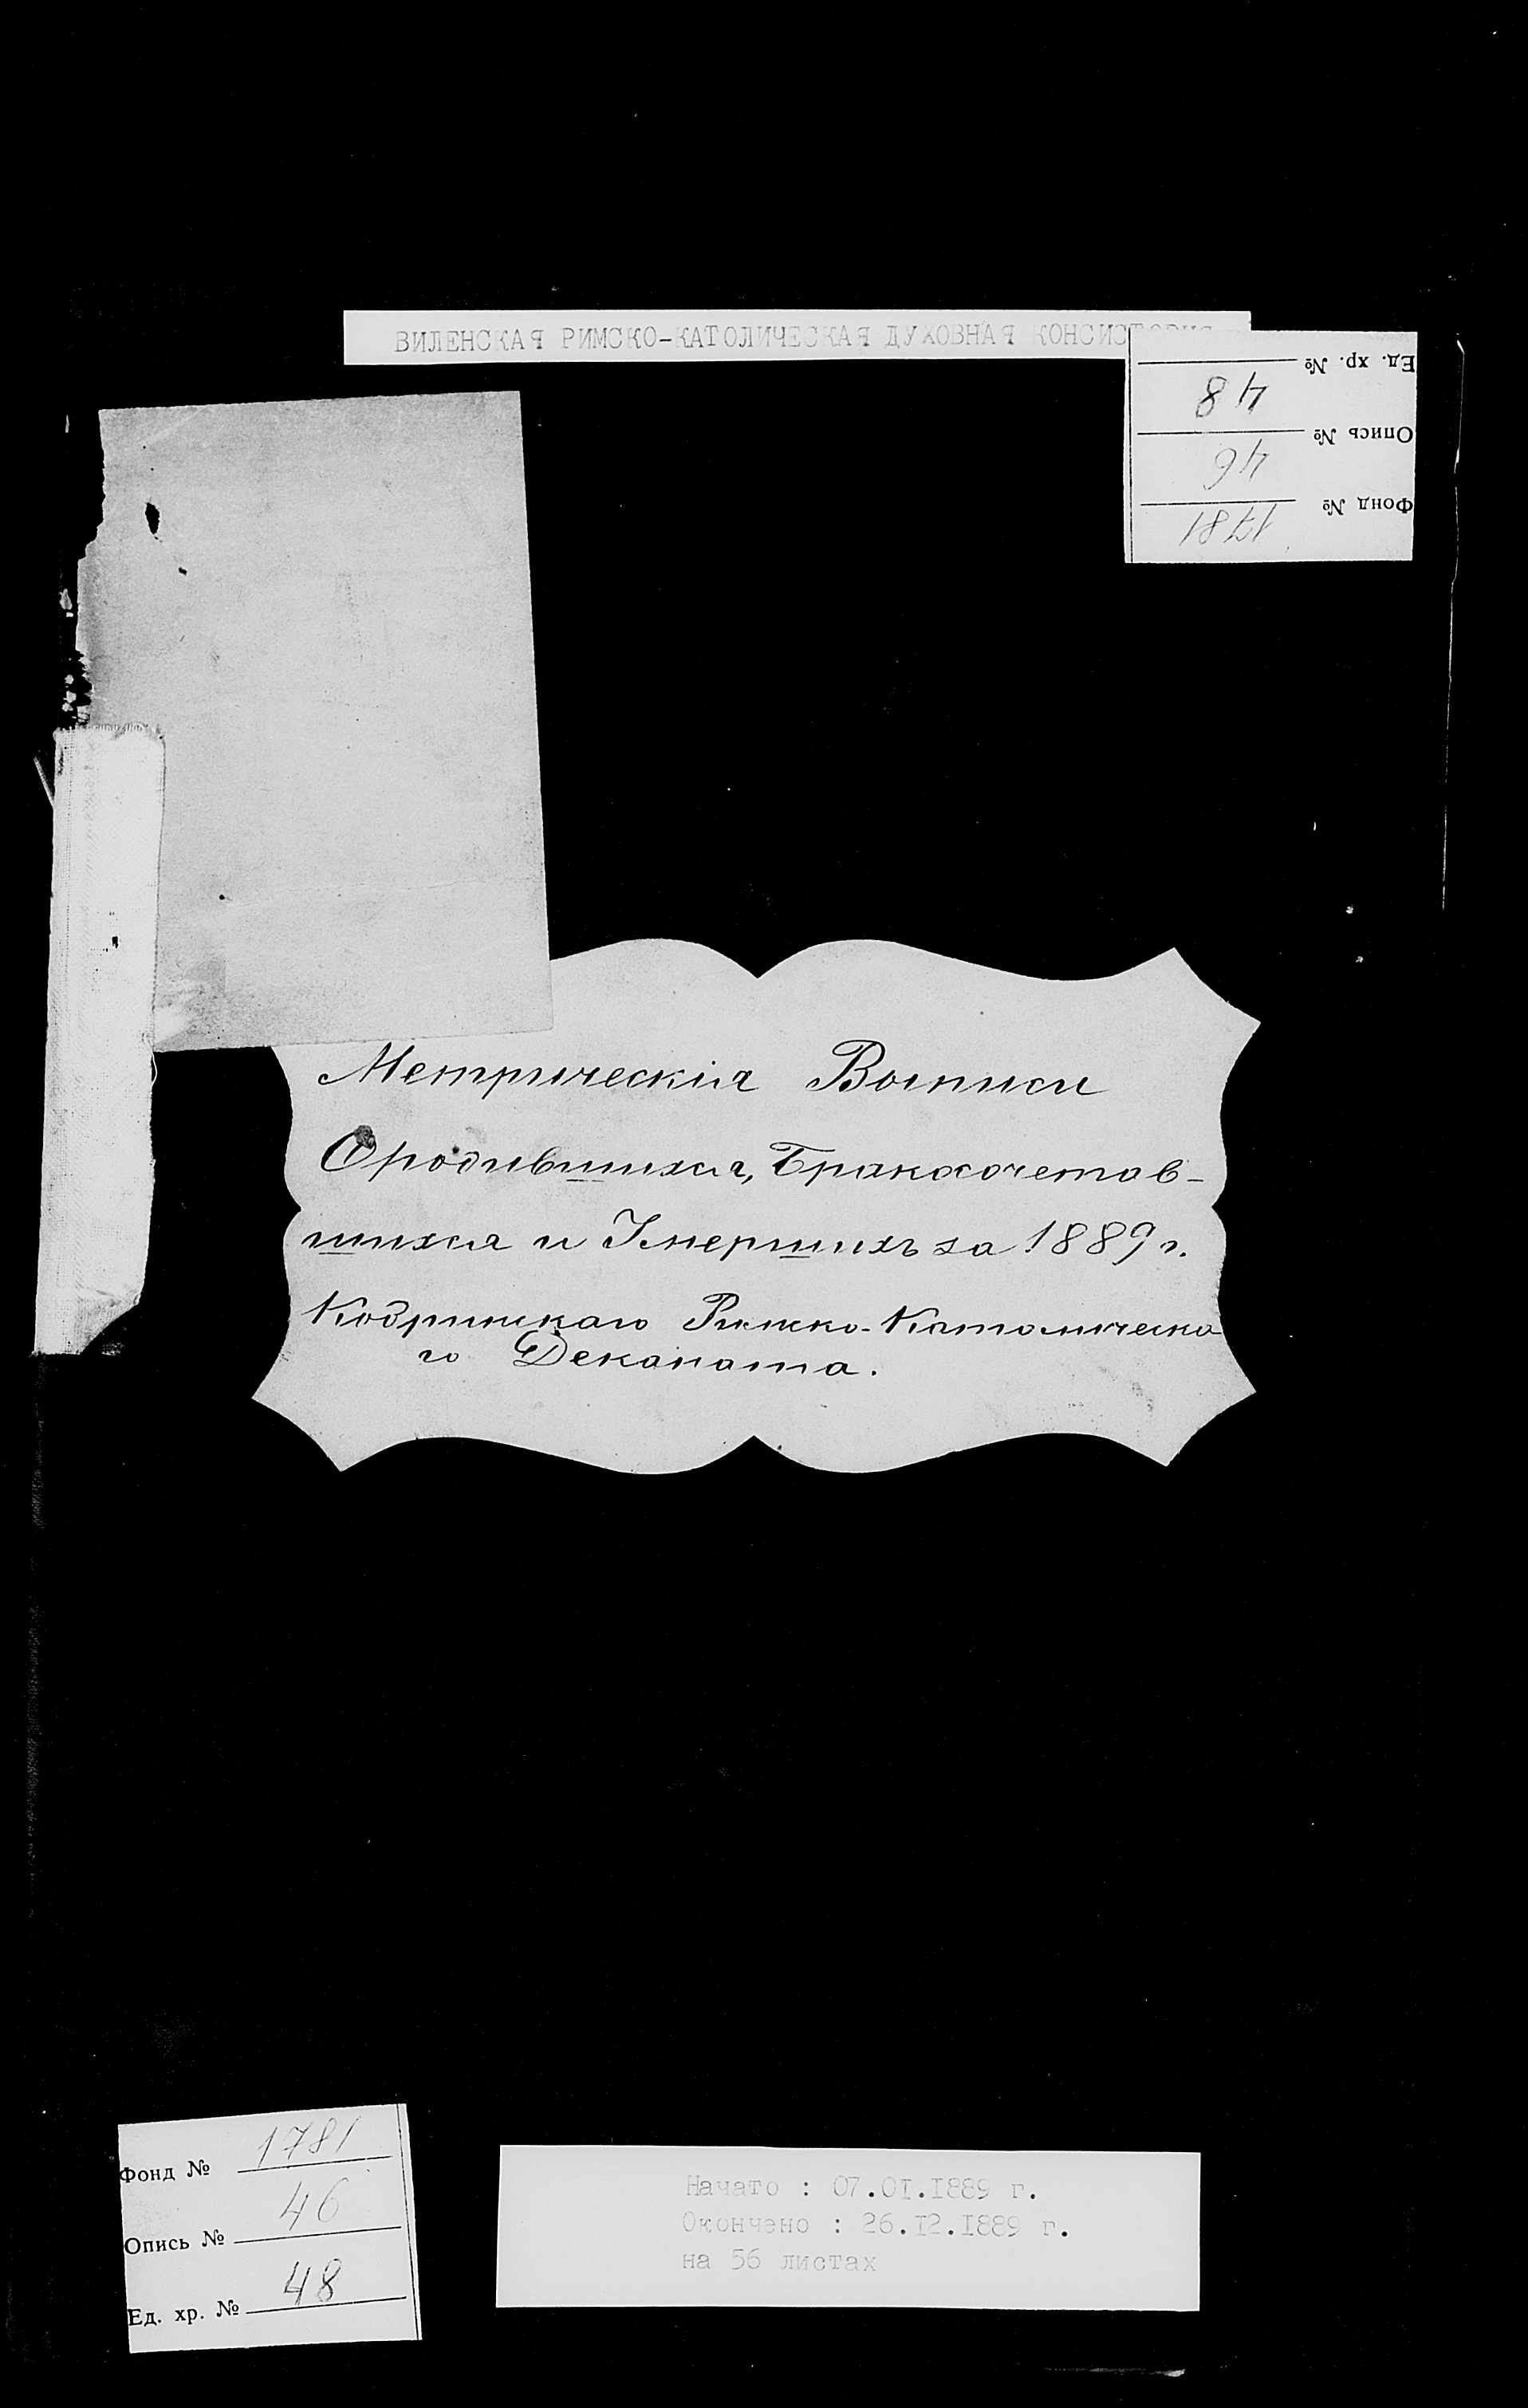 ВИЛЕНСКАЯ РИМСКО-КАТОЛИЧЕСКАЯ ДУХОВНАЯ
Фонд № 1781
Опись № 46
Ед. хр. № 48
Метрическія Выписи
О родившихся, Бракосочетав-
шихся и Умершихъ за 1889 г.
Кобринскаго Римско-Католическа
го Деканата.
Фонд № 1781
Опись № 46
Ед. хр. № 48
Начато : 07.01.1889 г.
Окончено : 26.12.1889 г.
на 56 листах